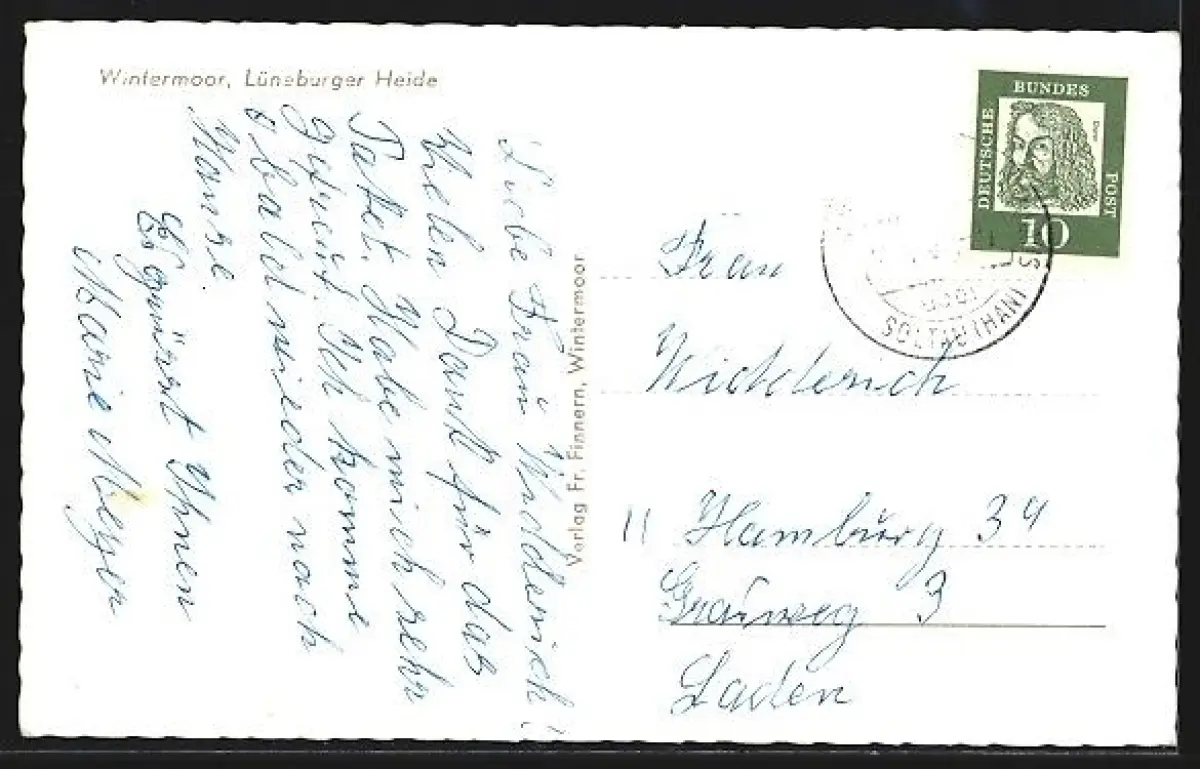 Wintermoor, Lüneburger Heide
Liebe Frau
Vielen Dank für das
Paket. Habe mich sehr
gefreut. Ich komme
bald wieder nach
Hause
Es grüsst Ihnen
Marie Meyer
Verlag Fr. Finnern, Wintermoor
DEUTSCHE
BUNDES
POST
10
SOLTAU (HAN)
Frau
11 Hamburg 39
Grauweg 3
Laden